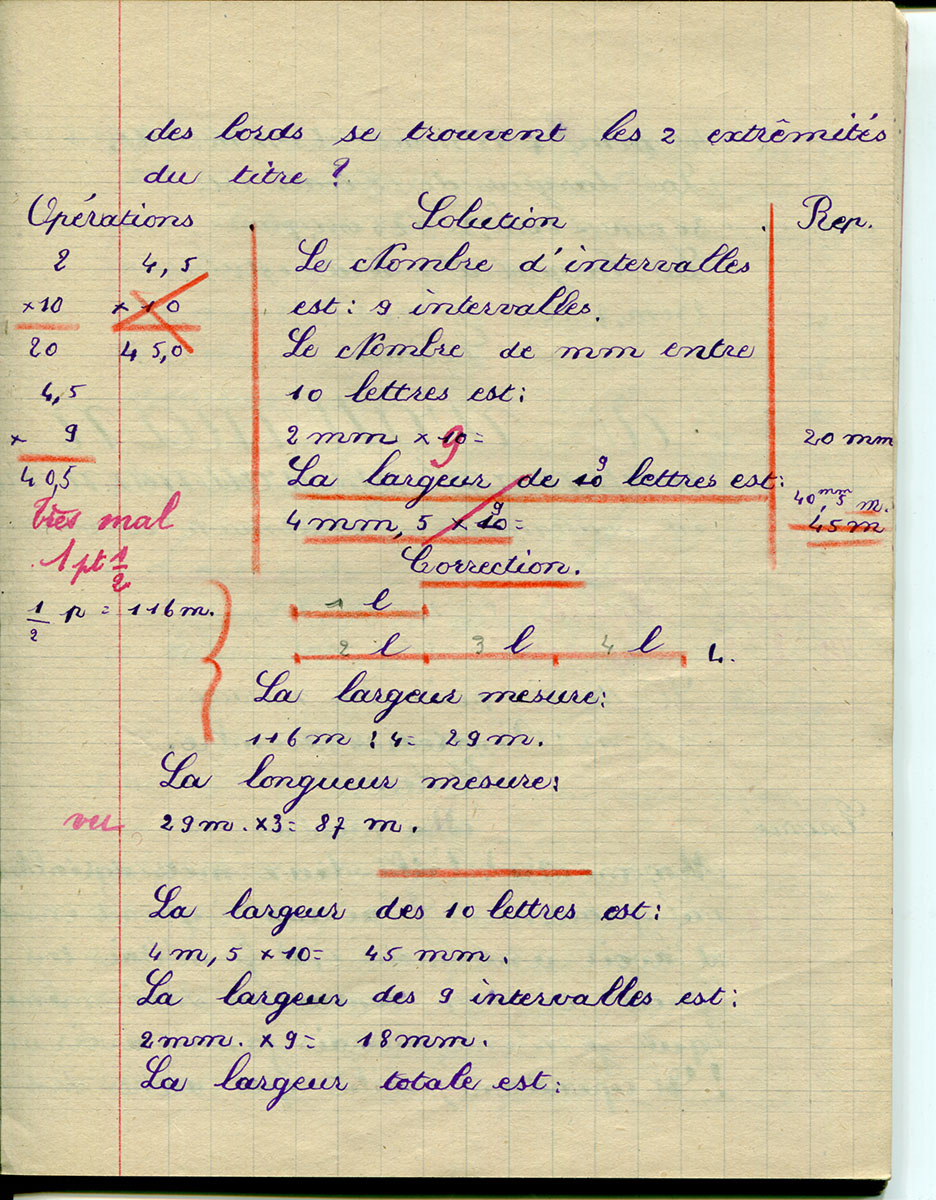 des bords se trouvent les 2 extrêmités
du titre ?
Opérations . Solution . Rep.
2 4,5 Le Nombre d'intervalles
×10 ×10 est : 9 intervalles.
20 45,0 Le Nombre de mm entre
4,5 10 lettres est :
× 9 2 mm × 10 = 20 mm
9
40,5 La largeur de 10 9 lettres est :
40,mm5 m.
Très mal 4 mm, 5 × 10 9 = 45 m
1 pt 1/2 Correction.
1/2 p = 116 m. 1 l
2 l 3 l 4 l L.
La largeur mesure :
116 m : 4 = 29 m.
La longueur mesure :
vu 29 m. × 3 = 87 m.
La largeur des 10 lettres est :
4 m, 5 × 10 = 45 mm.
La largeur des 9 intervalles est :
2 mm. × 9 = 18 mm.
La largeur totale est :